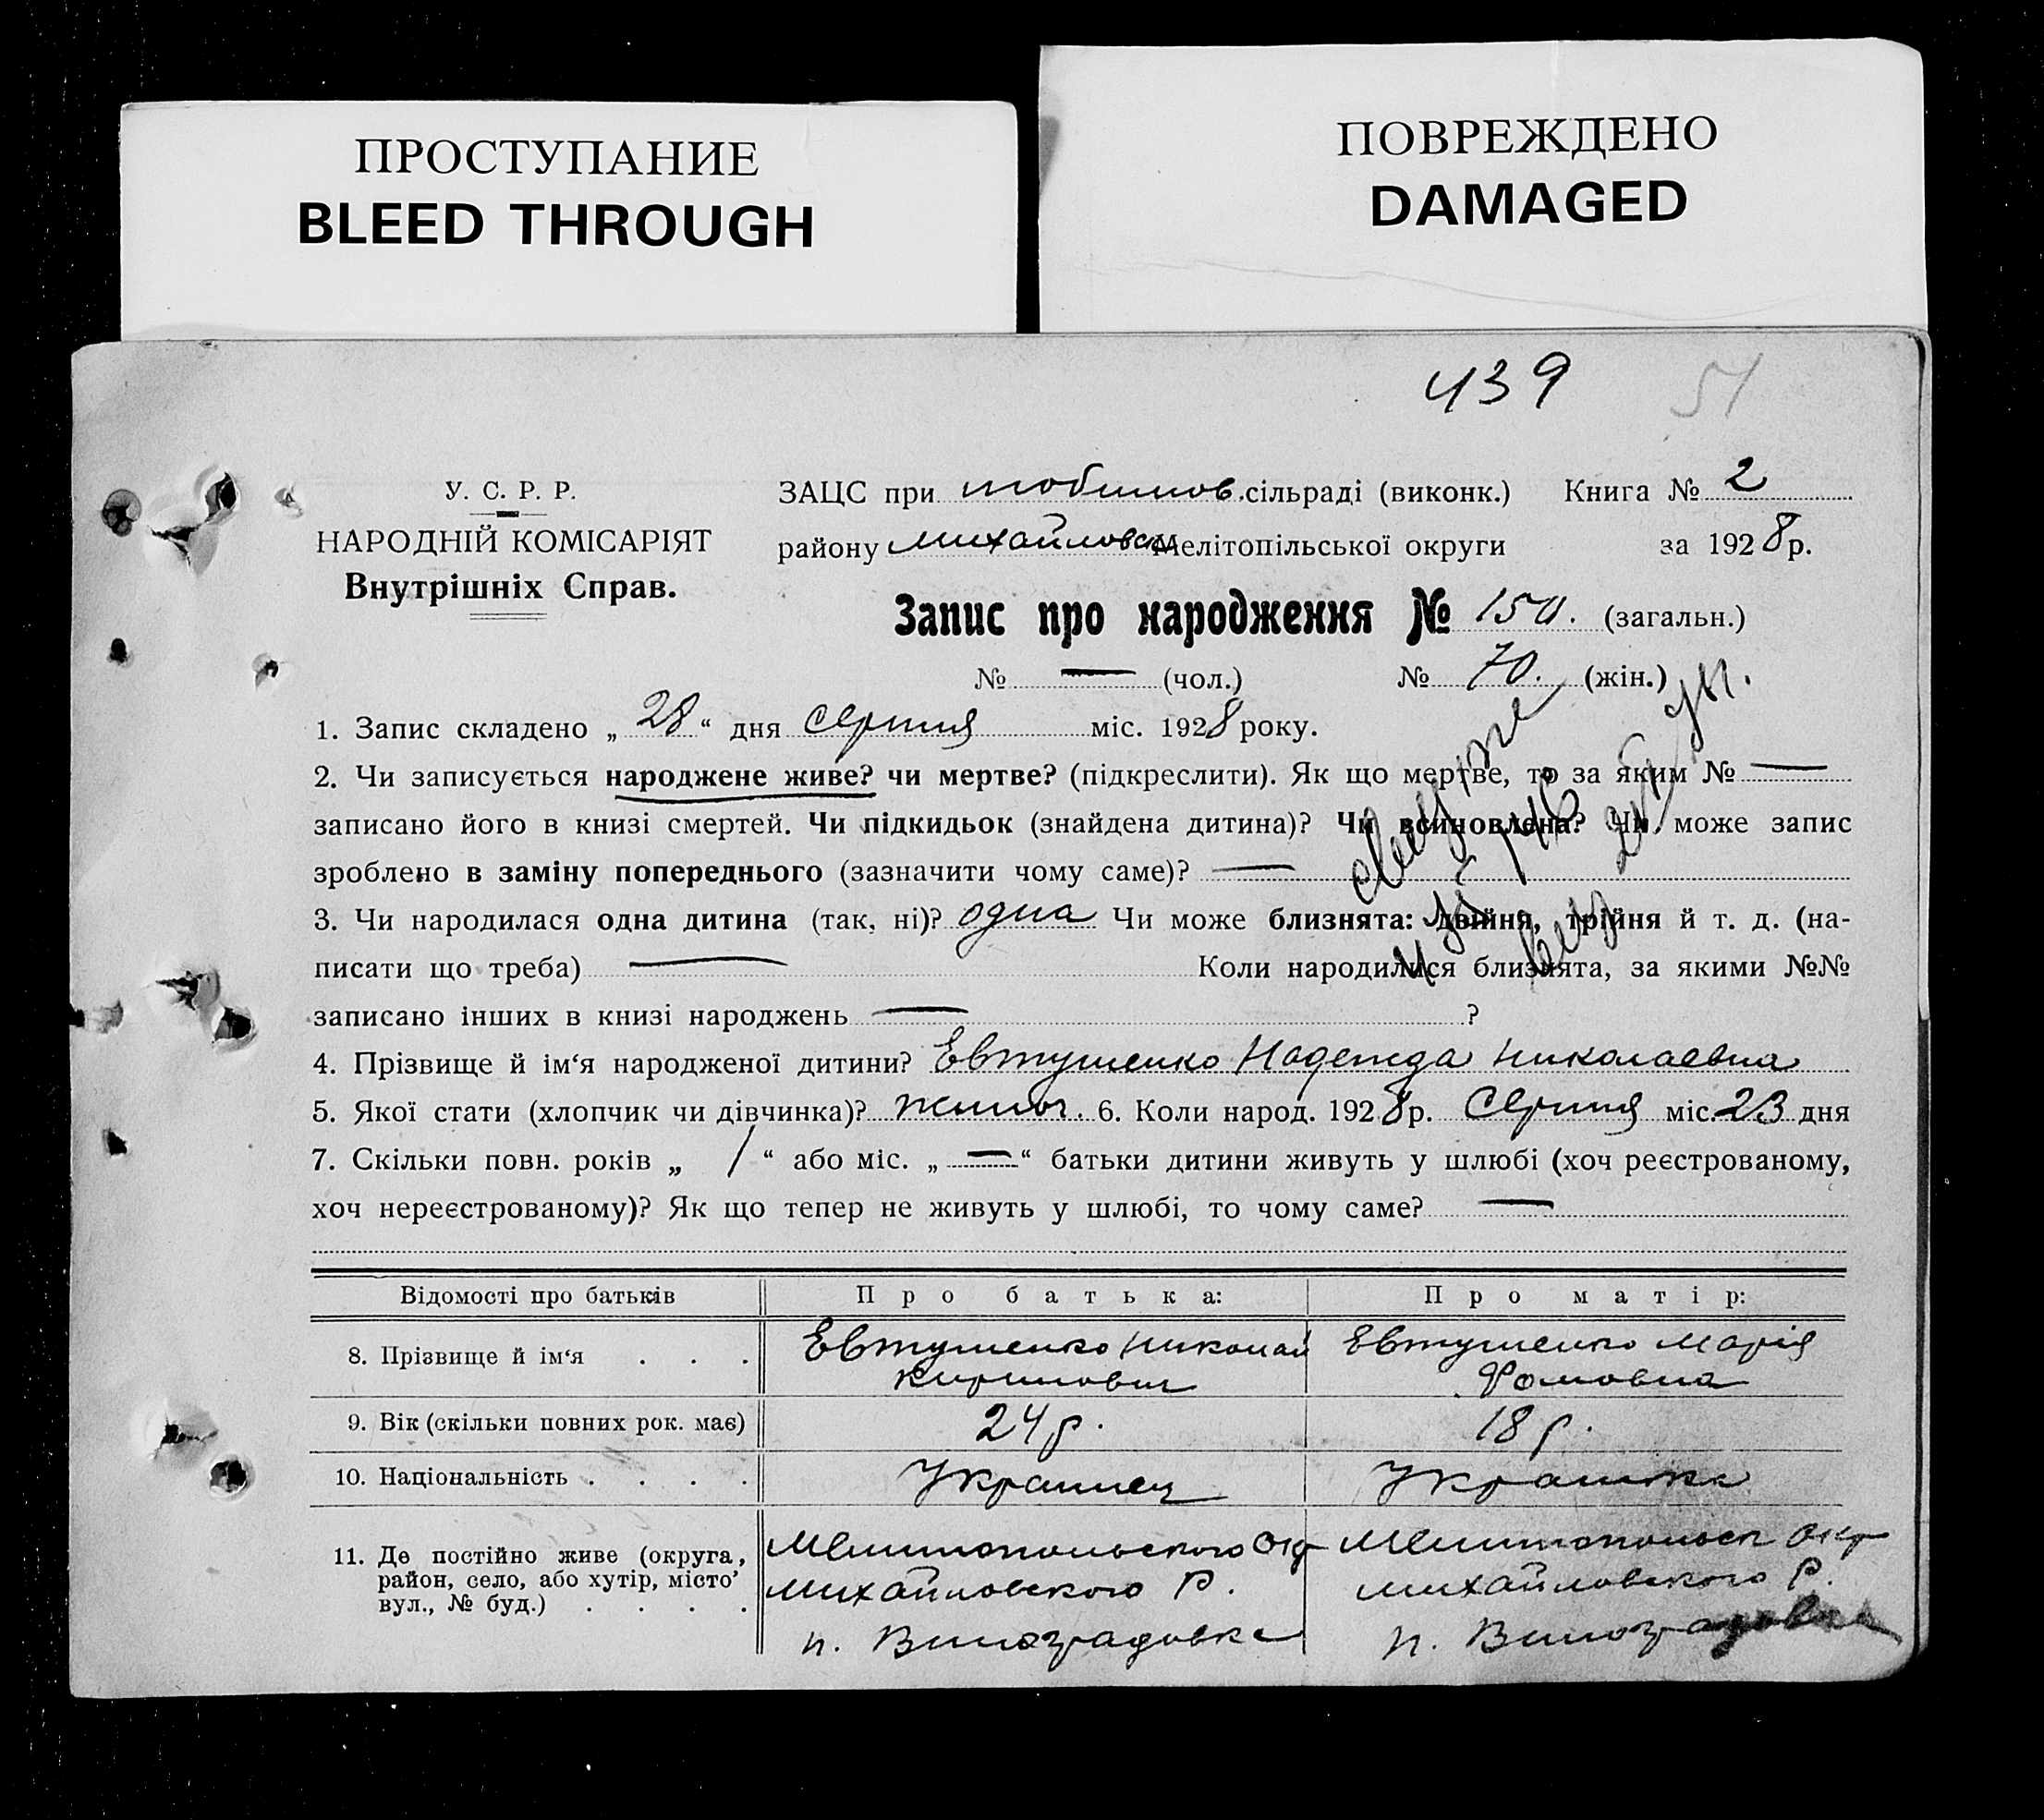 ПРОСТУПАНИЕ
BLEED THROUGH
ПОВРЕЖДЕНО
DAMAGED
439 51
У. С. Р. Р.
НАРОДНІЙ КОМІСАРІЯТ
Внутрішніх Справ.
ЗАЦС при сільраді (виконк.) Книга № 2
району Михайловск Мелітопільської округи за 1928 р.
Запис про народження № 150. (загальн.)
№ — (чол.) № 70. (жін.)
1. Запис складено „ 28 “ дня Серпня міс. 1928 року.
2. Чи записується народжене живе? чи мертве? (підкреслити). Як що мертве, то за яким № —
записано його в книзі смертей. Чи підкидьок (знайдена дитина)? Чи всиновлена? Чи може запис
зроблено в заміну попереднього (зазначити чому саме)? —
3. Чи народилася одна дитина (так, ні)? одна Чи може близнята: двійня, трійня й т. д. (на-
писати що треба) — Коли народилися близнята, за якими №№
записано інших в книзі народжень — ?
4. Прізвище й ім‘я народженої дитини? Евтушенко Надежда Николаевна
5. Якої стати (хлопчик чи дівчинка)? 6. Коли народ. 1928 р. Серпня міс. 23 дня
7. Скільки повн. років „ 1 “ або міс. „ — “ батьки дитини живуть у шлюбі (хоч реєстрованому,
хоч нереєстрованому)? Як що тепер не живуть у шлюбі, то чому саме? —
Відомості про батьків Про батька: Про матір:
8. Прізвище й ім‘я . . . Евтушенко Николай Евтушенко Марія
Кирилович Фомовна
9. Вік (скільки повних рок. має) 24 р. 18 р.
10. Національність . . . . Украинец Украинка
11. Де постійно живе (округа, Мелитопольского Окр Мелитопольск Окр
район, село, або хутір, місто, Михайловского Р. Михайловского Р.
вул., № буд.) . . . . п. Виноградовка п. Виноградовка